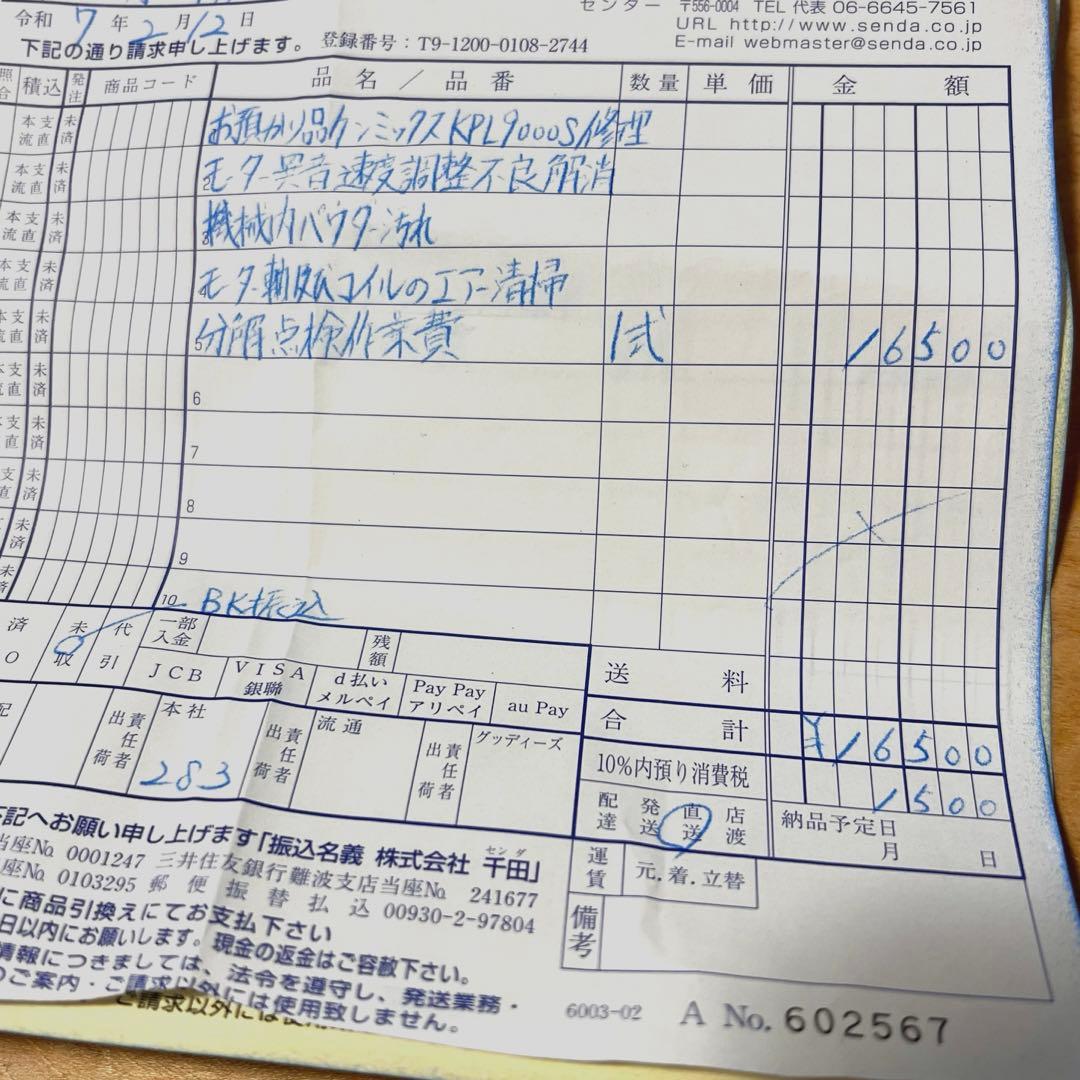 センター 〒556-0004 TEL 代表 06-6645-7561
令和 7 年 2 月 12 日
URL http://www.senda.co.jp
下記の通り請求申し上げます。 登録番号：T9-1200-0108-2744
E-mail webmaster@senda.co.jp
照合 積込 発注 商品コード 品名／品番 数量 単価 金額
本支流直 未済 お預かり品ケンミックスKPL9000S修理
本支流直 未済 2 モーター異音速度調整不良解消
本支流直 未済 機械内パウダー汚れ
本支流直 未済 モーター軸及びコイルのエアー清掃
本支流直 未済 5 分解点検作業費 1式 16500
本支流直 未済 6
本支流直 未済 7
支直 未済 8
未済 9
未済 10 BK振込
済 未収 代引 一部入金 残額
JCB VISA 銀聯 d払い メルペイ Pay Pay アリペイ au Pay
送料
合計 ¥16500
10%内預り消費税 1500
配 出荷責任者 本社 283 出荷責任者 流通 出荷責任者 グッディーズ
配達 発送 直送 店渡 納品予定日 月 日
運賃 元．着．立替
備考
下記へお願い申し上げます「振込名義 株式会社 千田」
センダ
当座№ 0001247 三井住友銀行難波支店当座№ 241677
座№ 0103295 郵便振替払込 00930-2-97804
に商品引換えにてお支払下さい
日以内にお願いします。現金の返金はご容赦下さい。
情報につきましては、法令を遵守し、発送業務・
のご案内・ご請求以外には使用致しません。
ご請求以外には使用
6003-02 A No. 602567